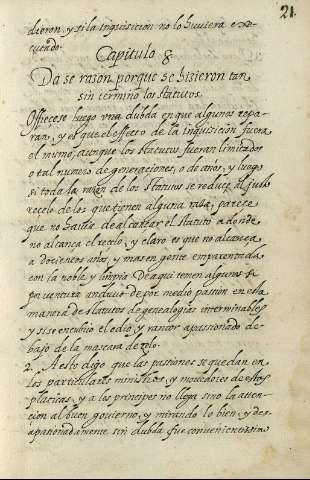 21
dieron, y si la Inquisicion no lo huviera exe-
cutado.
Capitulo 8
Da se rason porque se hisieron tan
sin termino los statutos.
Offrecese luego una dubda en que algunos repa-
ran, y es que el effecto de la Inquisicion fuera
el mismo, aunque los statutos fueran limitados
a tal numero de generaciones, o de años, y luego
si toda la rason de los statutos se reduce al justo
recelo de los que tienen alguna rasa, parece
que no havia de alcansar el statuto a donde
no alcança el recelo, y claro es que no alcança
a docientos años, y mas en gente emparentada
con la noble y limpia. De aqui temen algunos si
por ventura anduvo de por medio passion en esta
manera de statutos de genealogias interminables
y si se encubrio el odio, y rancor apassionado de-
bajo de la mascara de zelo.
2. A esto digo que las passiones se quedan en
los particulares ministros, y movedores de estas
platicas, y a los principes no llega sino la atten-
cion al buen govierno, y mirando lo bien, y des-
apasionadamente sin dubda fue conveniente